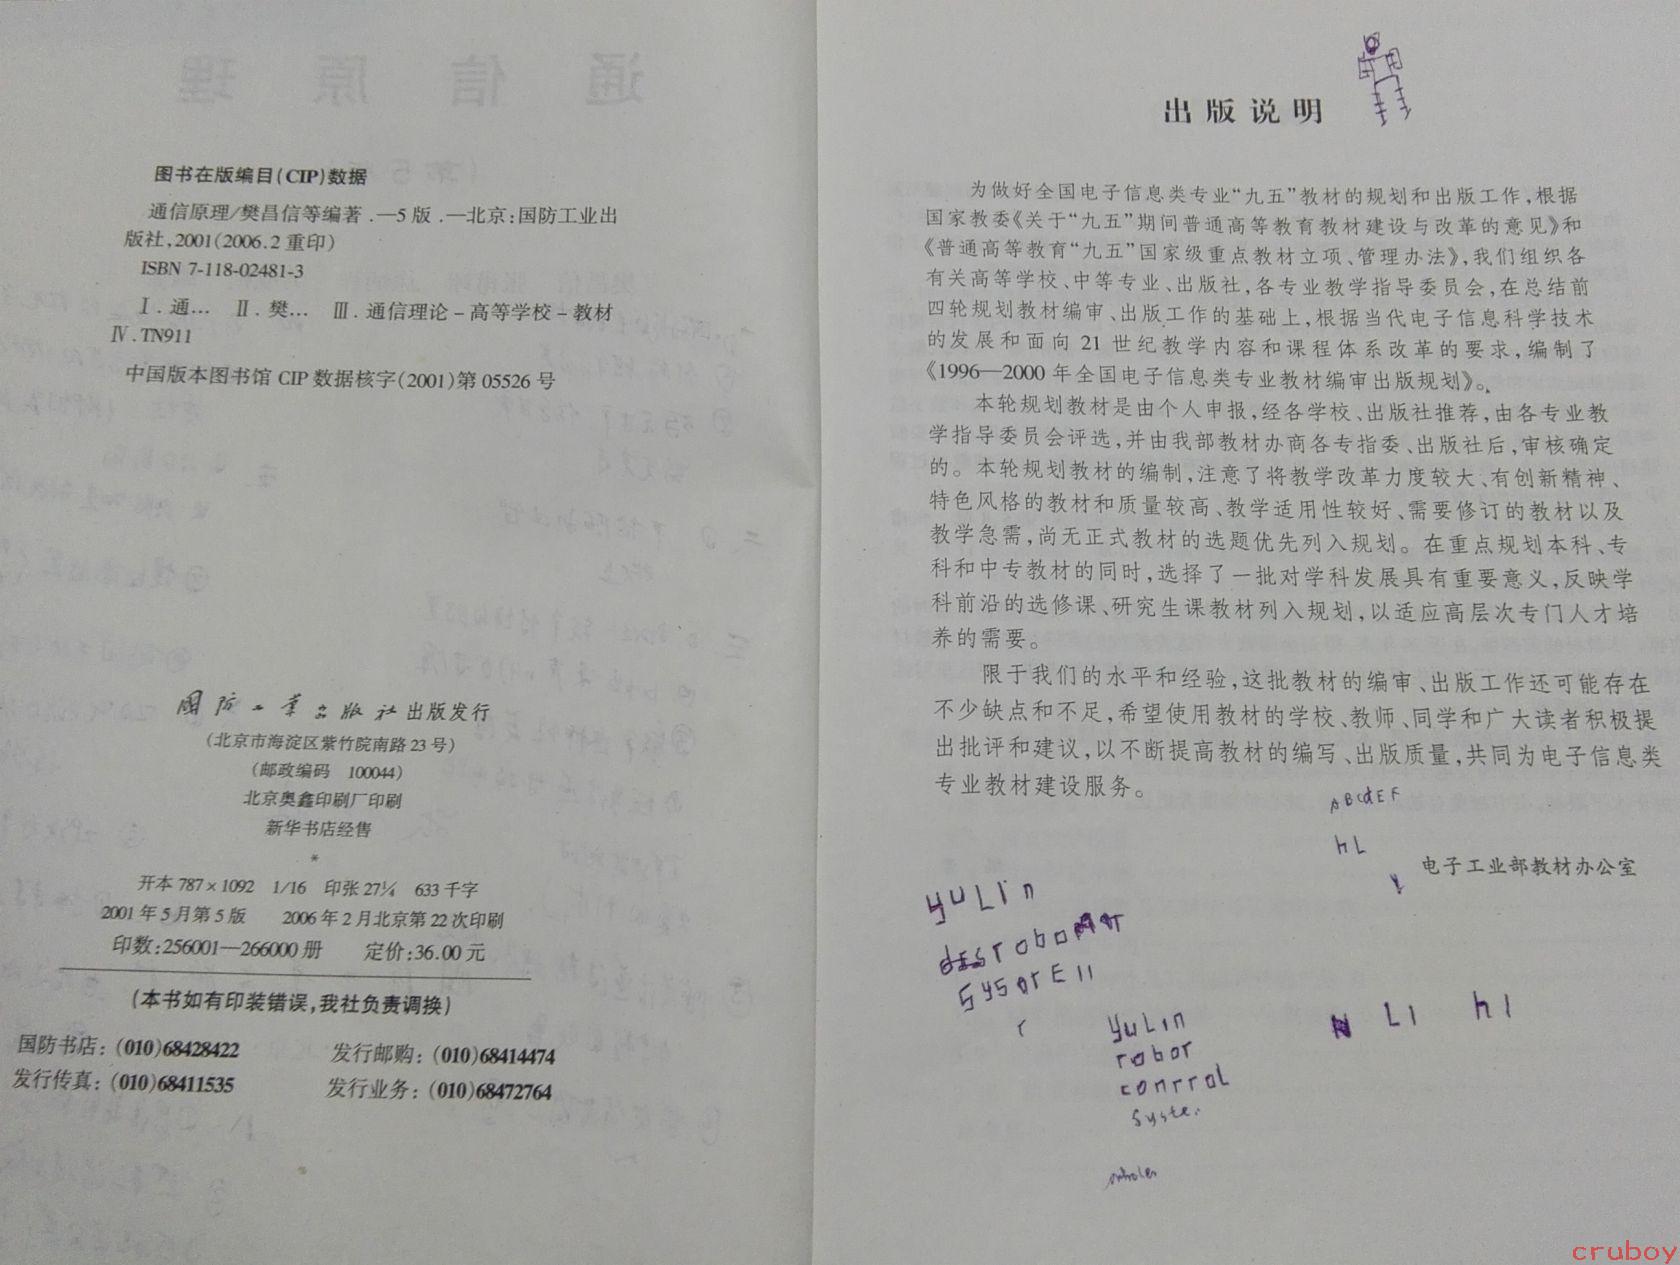 图书在版编目(CIP)数据
通信原理/樊昌信等编著.—5版.—北京:国防工业出
版社,2001(2006.2重印)
ISBN 7-118-02481-3
Ⅰ.通… Ⅱ.樊… Ⅲ.通信理论-高等学校-教材
Ⅳ.TN911
中国版本图书馆CIP数据核字(2001)第05526号
国防工业出版社出版发行
(北京市海淀区紫竹院南路23号)
(邮政编码 100044)
北京奥鑫印刷厂印刷
新华书店经售
*
开本787×1092 1/16 印张27¼ 633千字
2001年5月第5版 2006年2月北京第22次印刷
印数:256001—266000册 定价:36.00元
(本书如有印装错误,我社负责调换)
国防书店:(010)68428422 发行邮购:(010)68414474
发行传真:(010)68411535 发行业务:(010)68472764
出版说明
为做好全国电子信息类专业“九五”教材的规划和出版工作,根据
国家教委《关于“九五”期间普通高等教育教材建设与改革的意见》和
《普通高等教育“九五”国家级重点教材立项、管理办法》,我们组织各
有关高等学校、中等专业、出版社,各专业教学指导委员会,在总结前
四轮规划教材编审、出版工作的基础上,根据当代电子信息科学技术
的发展和面向21世纪教学内容和课程体系改革的要求,编制了
《1996—2000年全国电子信息类专业教材编审出版规划》。
本轮规划教材是由个人申报,经各学校、出版社推荐,由各专业教
学指导委员会评选,并由我部教材办商各专指委、出版社后,审核确定
的。本轮规划教材的编制,注意了将教学改革力度较大、有创新精神、
特色风格的教材和质量较高、教学适用性较好、需要修订的教材以及
教学急需,尚无正式教材的选题优先列入规划。在重点规划本科、专
科和中专教材的同时,选择了一批对学科发展具有重要意义,反映学
科前沿的选修课、研究生课教材列入规划,以适应高层次专门人才培
养的需要。
限于我们的水平和经验,这批教材的编审、出版工作还可能存在
不少缺点和不足,希望使用教材的学校、教师、同学和广大读者积极提
出批评和建议,以不断提高教材的编写、出版质量,共同为电子信息类
专业教材建设服务。
ABCdEF
hL
电子工业部教材办公室
yuLin
r
N LI hI
yuLin
robor
conrroL
syste.
cruboy